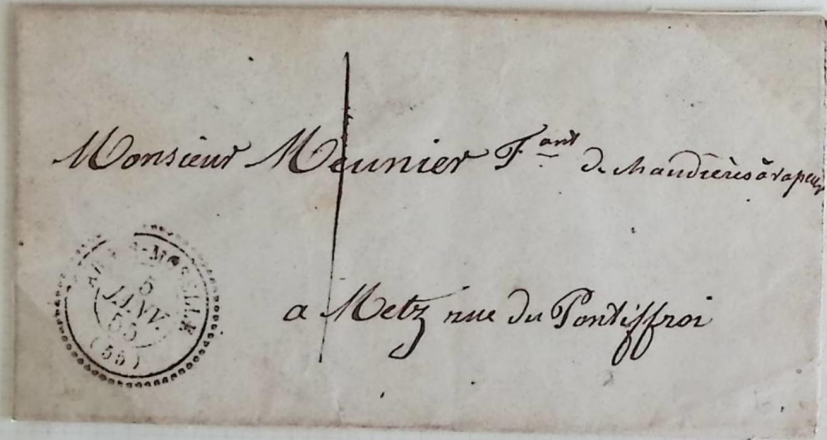 Monsieur Meunier Fant de chaudières à vapeur
a Metz rue du Pontiffroi
ARS-S-MOSELLE
5
JANV.
55
(55)